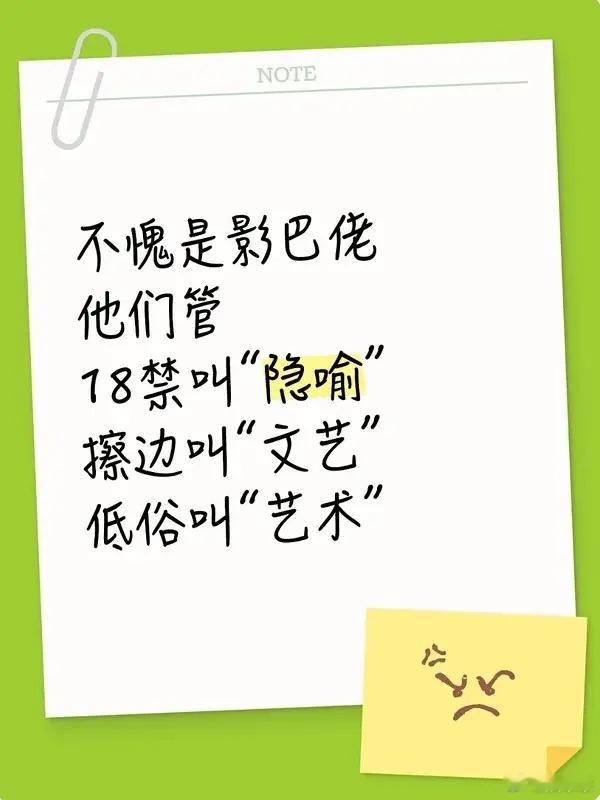 NOTE
不愧是影巴佬
他们管
18禁叫“隐喻”
擦边叫“文艺”
低俗叫“艺术”